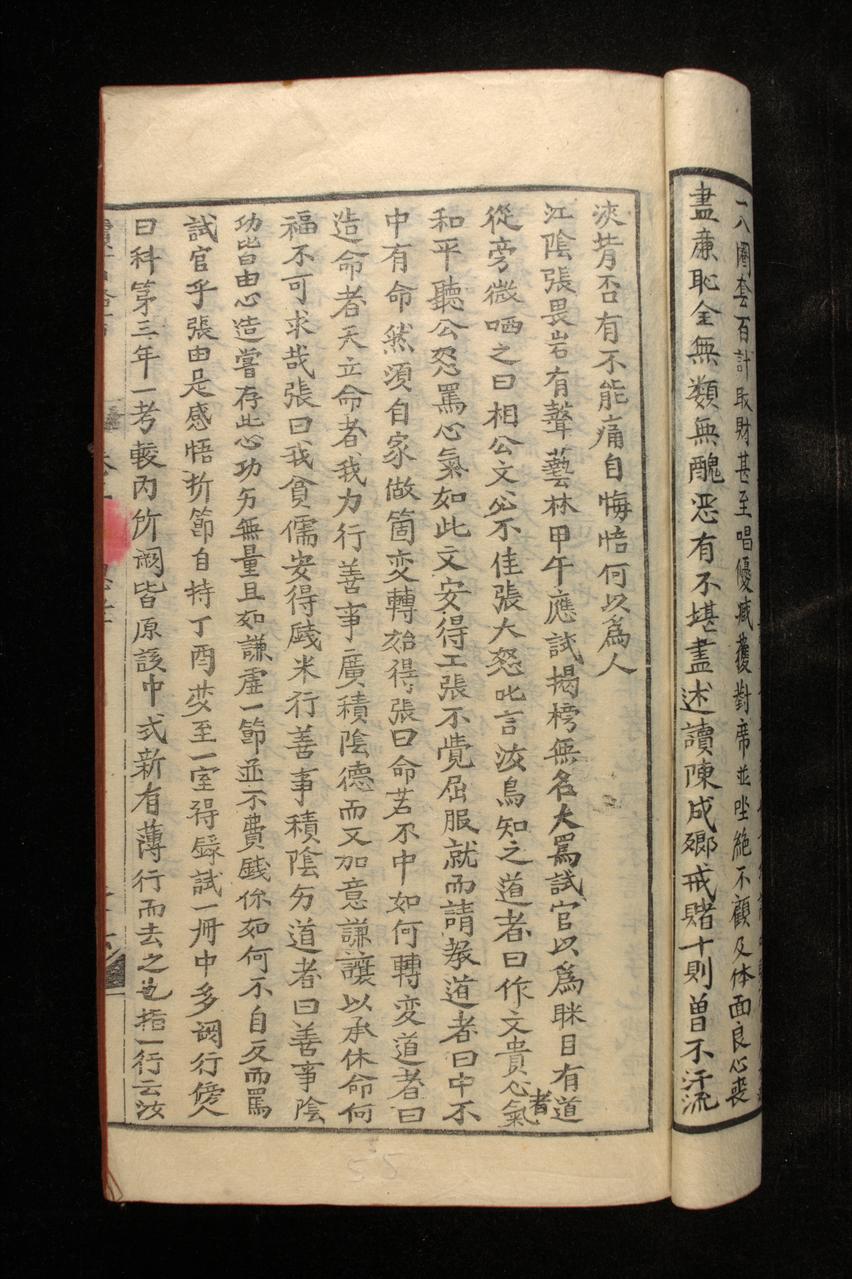 一入圈套百計取財甚至唱優臧獲對席並坐絶不顧及体面良心喪
盡廉恥全無類無醜恶有不堪盡述讀陳成卿戒賭十則曽不汗流
浹背否有不能痛自悔悟何以爲人
江陰張畏岩有聲藝林甲午應試揭榜無名大罵試官以爲眯目有道者
從旁微哂之曰相公文必不佳張大怒叱言汝烏知之道者曰作文貴心氣
和平聽公怨罵心氣如此文安得工張不覺屈服就而請教道者曰中不
中有命然須自家做箇变轉始得張曰命若不中如何轉变道者曰
造命者天立命者我力行善事廣積陰德而又加意謙讓以承休命何
福不可求哉張曰我貧儒安得賎米行善事積陰功道者曰善事陰
功皆由心造嘗存此心功夯無量且如謙虚一節並不費賎你如何不自反而罵
試官乎張由是感悟折節自持丁酉夢至一室得錄試一册中多闕行傍人
曰科第三年一考較内所闕皆原該中式新有薄行而去之也指一行云汝
卷十